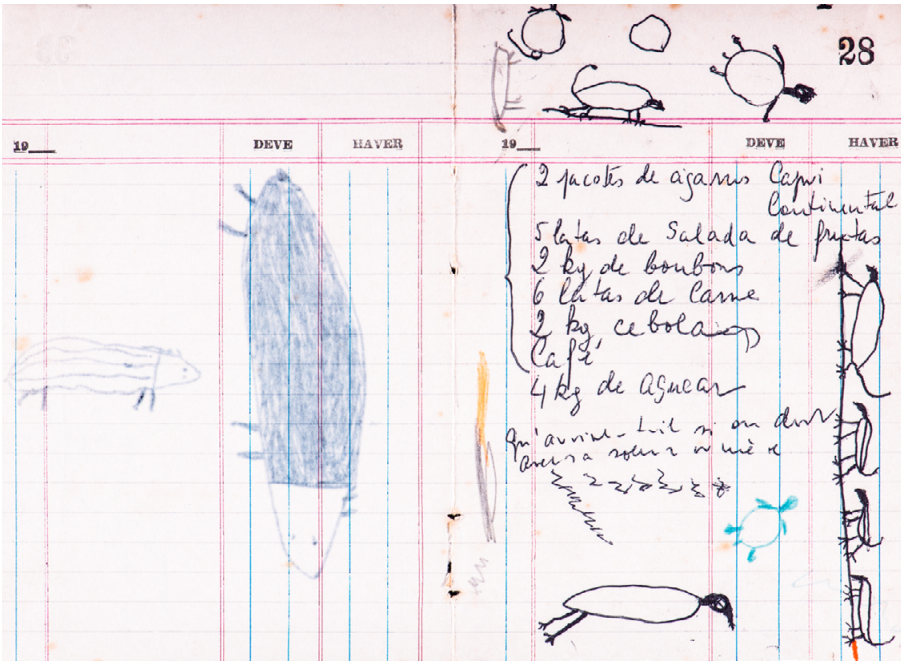 28
19
DEVE
HAVER
19
DEVE
HAVER
2 pacotes de cigarros Capri
Continental
5 latas de Salada de fructas
2 kg de bonbons
6 latas de Carne
2 kg cebola
Café
4 kg de açucar
Qu'arrive-t-il si on doit
sœur